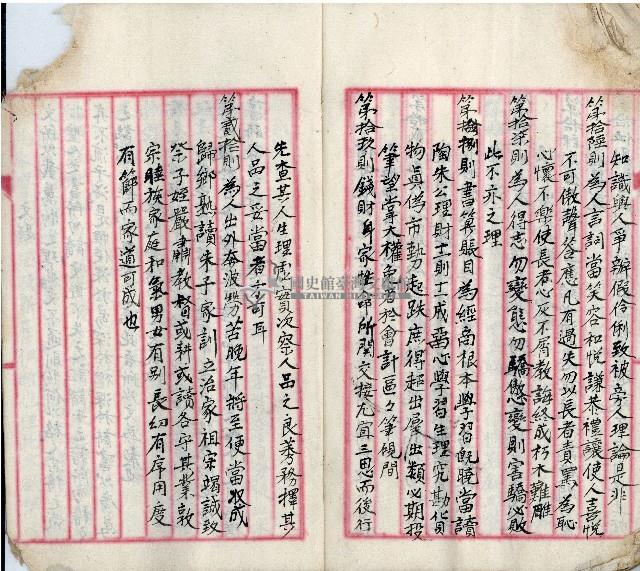 知識與人爭辦假伶俐致被旁人理論是非
第拾陸則為人言詞當笑容和悅謙恭禮讓使人喜悅
不可傲聲答應凡有過失勿以長者責罵為恥
心懷不樂使長者心灰不屑教誨終成朽木難雕
第拾柒則為人得志勿變態勿驕傲變則害驕必敗
此不亦之理
第拾捌則書算賬目為經商根本學習既曉當讀
陶朱公理財十二則十二戒悉心學習生理究勘化貝
物真偽市勢起跌庶得超出羣出類必期投
筆望掌大權免於會計區々筆硯間
第拾玖則錢財身家性命所關交接尤宜三思而後行
先查其人生理虛實次察人品之良莠務擇其
人品之妥當者方可耳
第貳拾則為人出外奔波勞苦晚年將至便當收成
歸鄉熟讀朱子家訓立治家祖宗竭誠致
祭子姪嚴肅教督或耕或讀各守其業敦
宗睦族家庭和氣男女有別長幼有序用度
有節而家道可成也
國史館臺灣文獻館
TAIWAN HISTORICA